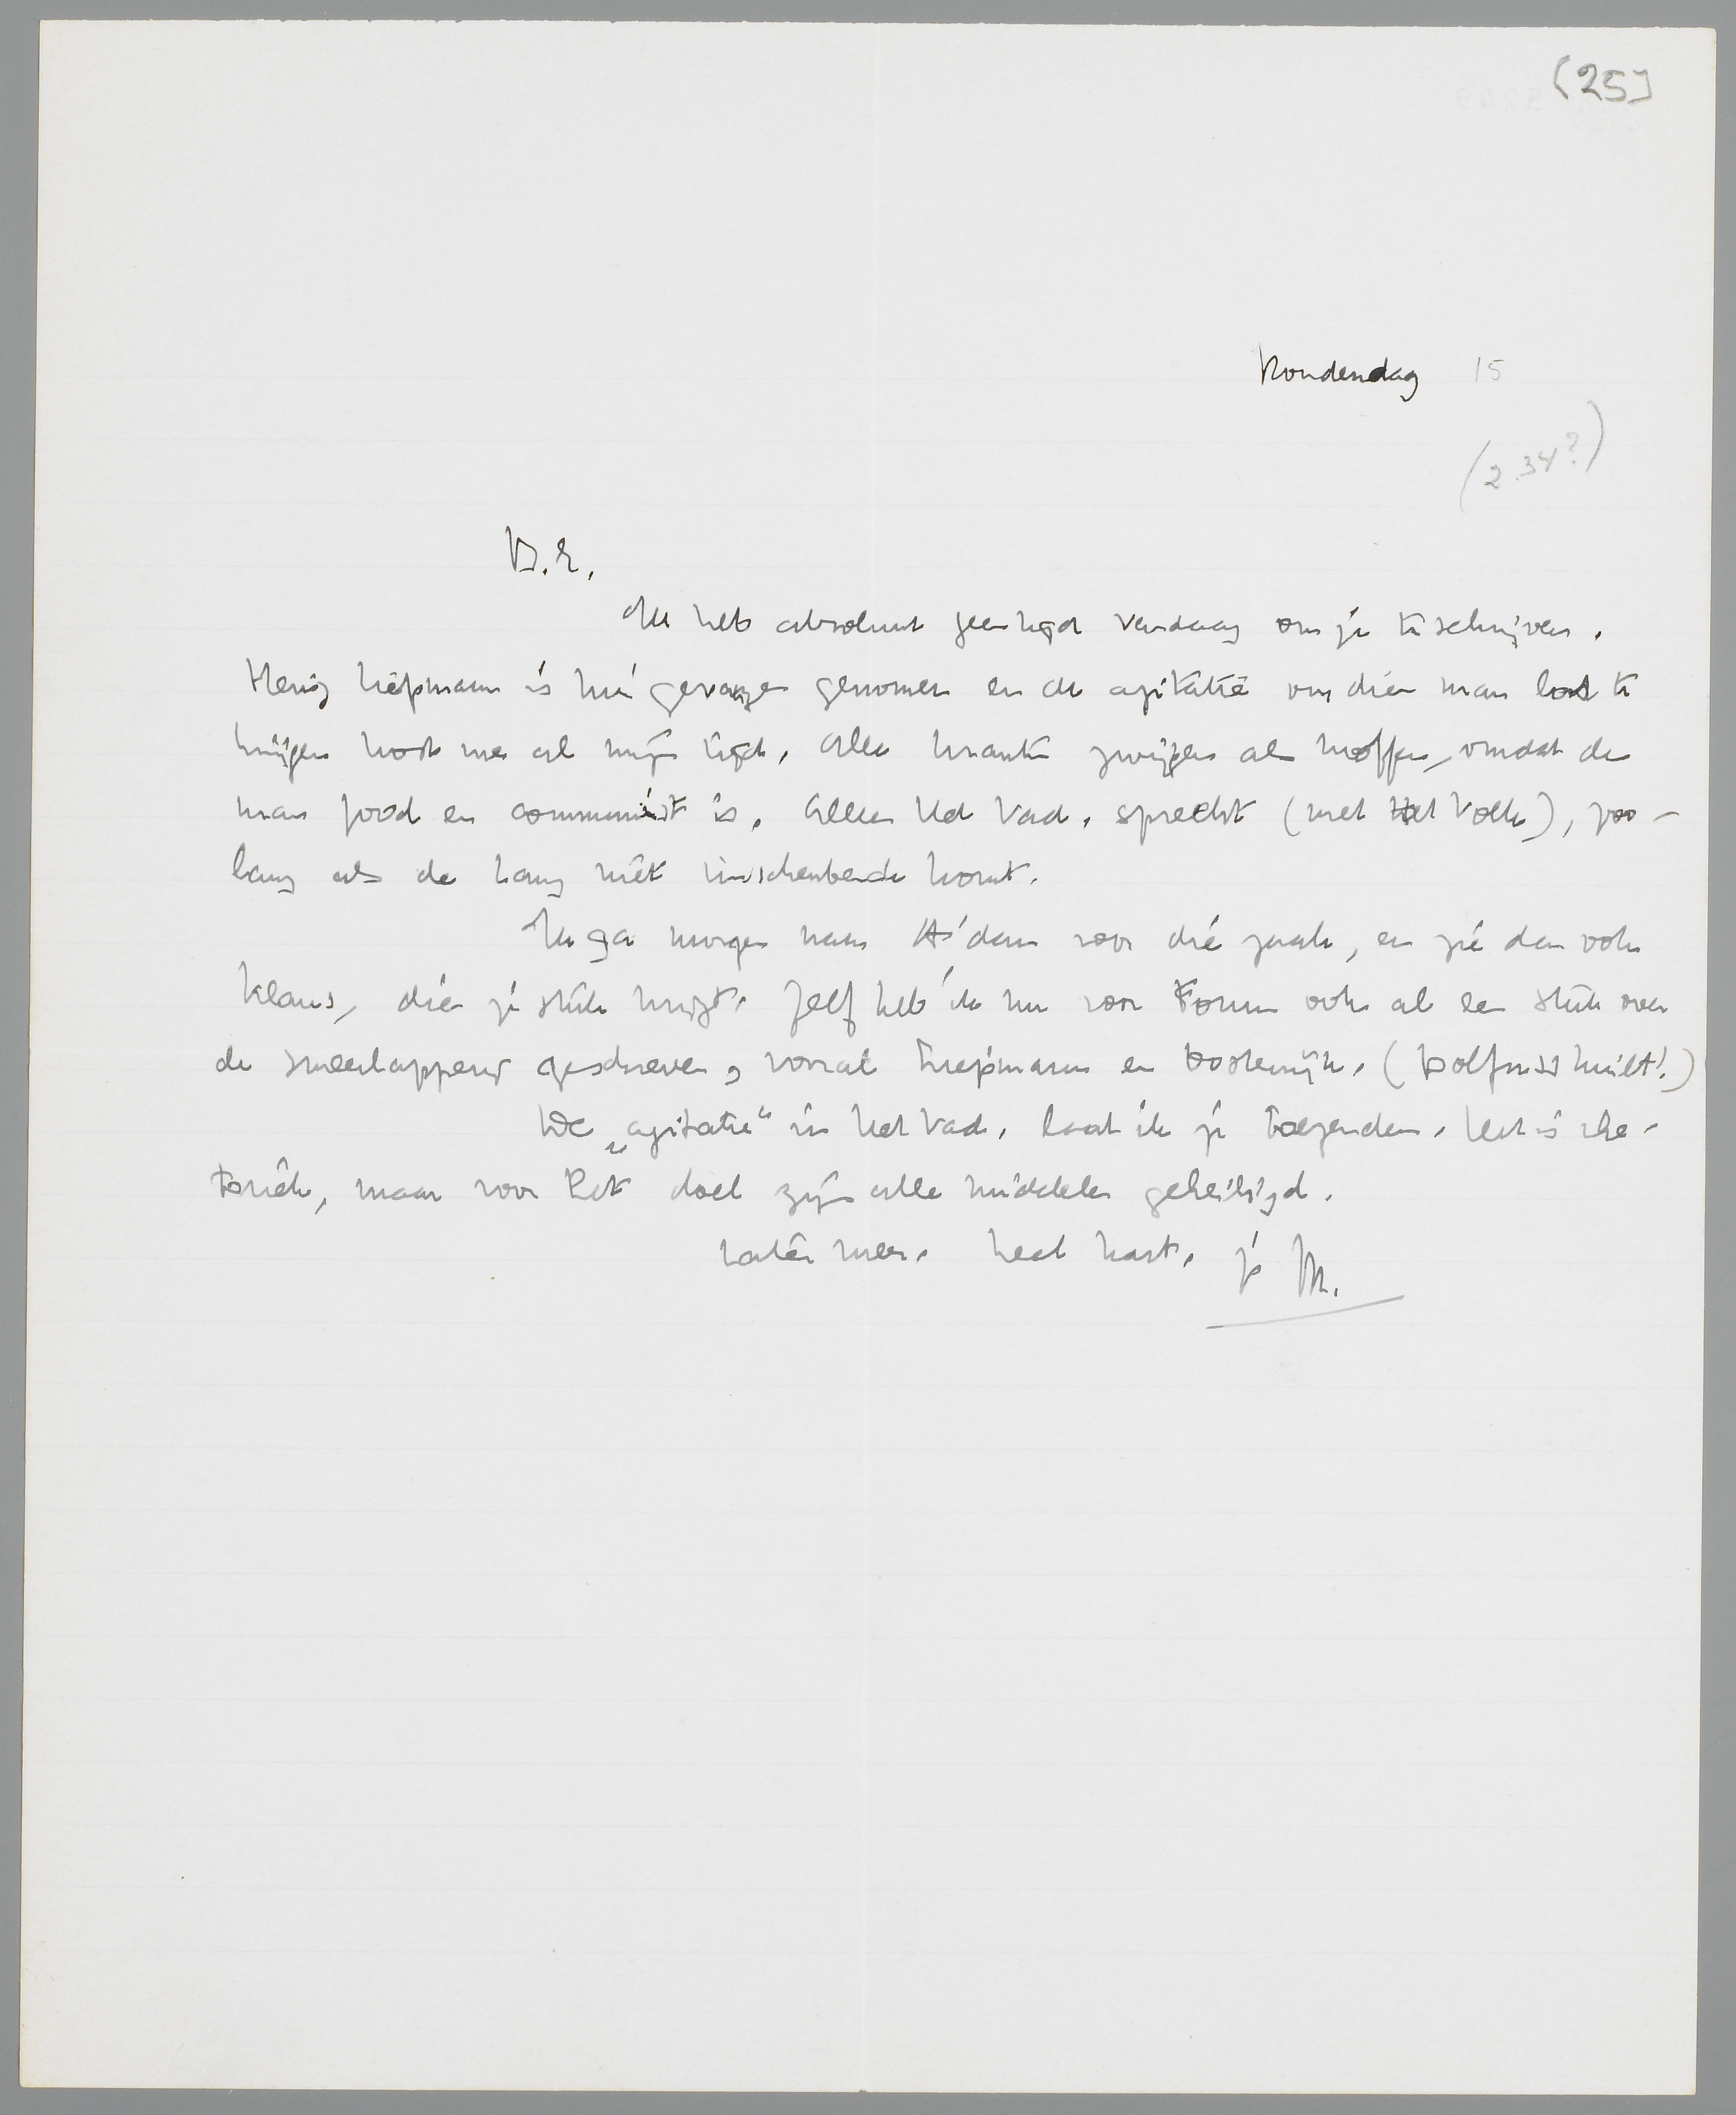 (25]
Donderdag 15
(2.34?)
B.E.
Ik heb absoluut geen tijd vandaag om je te schrijven.
Heinz Liepmann is hier gevangen genomen en de agitatie om dien man los te
krijgen kost me al mijn tijd. Alle kranten zwijgen als moffen, omdat de
man jood en communist is. Alleen Het Vad. spreekt (met Het Volk), zoo-
lang als de Haag niet tusschenbeide komt.
Ik ga morgen naar A'dam voor die zaak, en zie dan ook
Klaus, die je stuk krijgt. Zelf heb ik nu voor Forum ook al een stuk over
de smeerlapperij geschreven, vooral Liepmann en Oostenrijk. (Dolfuss huilt!)
De „agitatie" in Het Vad. laat ik je toezenden. Het is rhe-
toriek, maar voor het doel zijn alle middelen geheiligd.
Later meer. heel hart. je M.